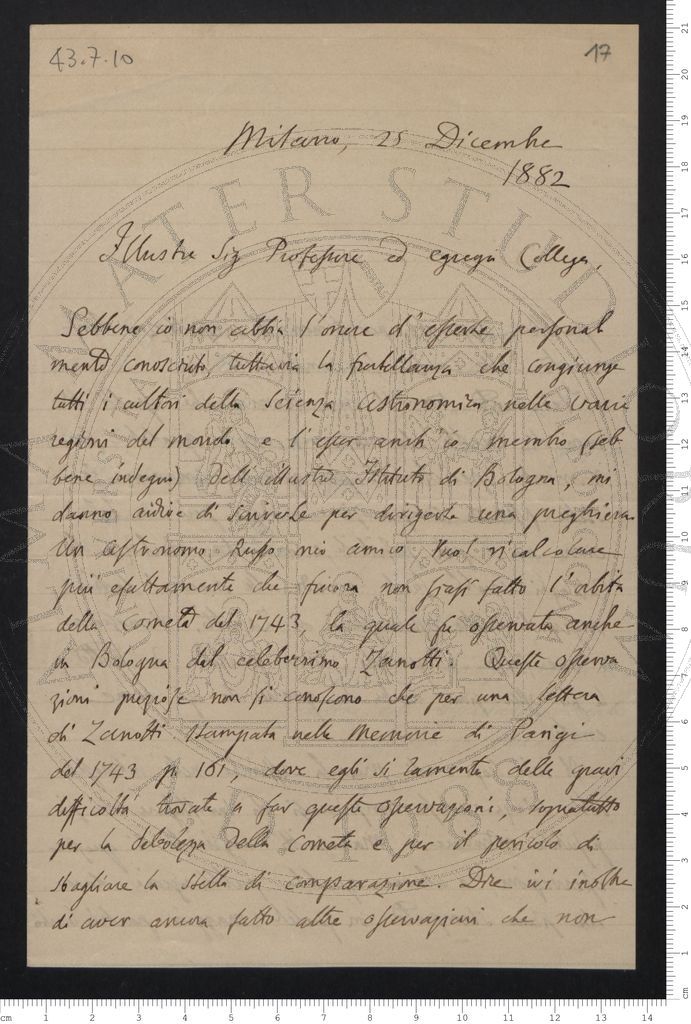 43.7.10
17
Milano, 25 Dicembre
1882
Illustre Sig Professore ed egregio Collega,
Sebbene io non abbia l'onore d'essere personal
mente conosciuto, tuttavia la fratellanza che congiunge
tutti i cultori della Scienza Astronomica nelle varie
regioni del mondo e l'esser anch'io membro (seb
bene indegno) dell'illustre Istituto di Bologna, mi
danno ardire di scriverle per dirigerle una preghiera.
Un astronomo Russo mio amico vuol ricalcolare
più esattamente che finora non siasi fatto l'orbita
della Cometa del 1743, la quale fu osservata anche
in Bologna dal celeberrimo Zanotti. Queste osserva
zioni preziose non si conoscono che per una lettera
di Zanotti stampata nelle Memorie di Parigi
del 1743 p. 161, dove egli si lamenta delle gravi
difficoltà trovate a far queste osservazioni, sopratutto
per la debolezza della Cometa e per il pericolo di
sbagliare la stella di comparazione. Dice ivi inoltre
di aver ancora fatto altre osservazioni che non